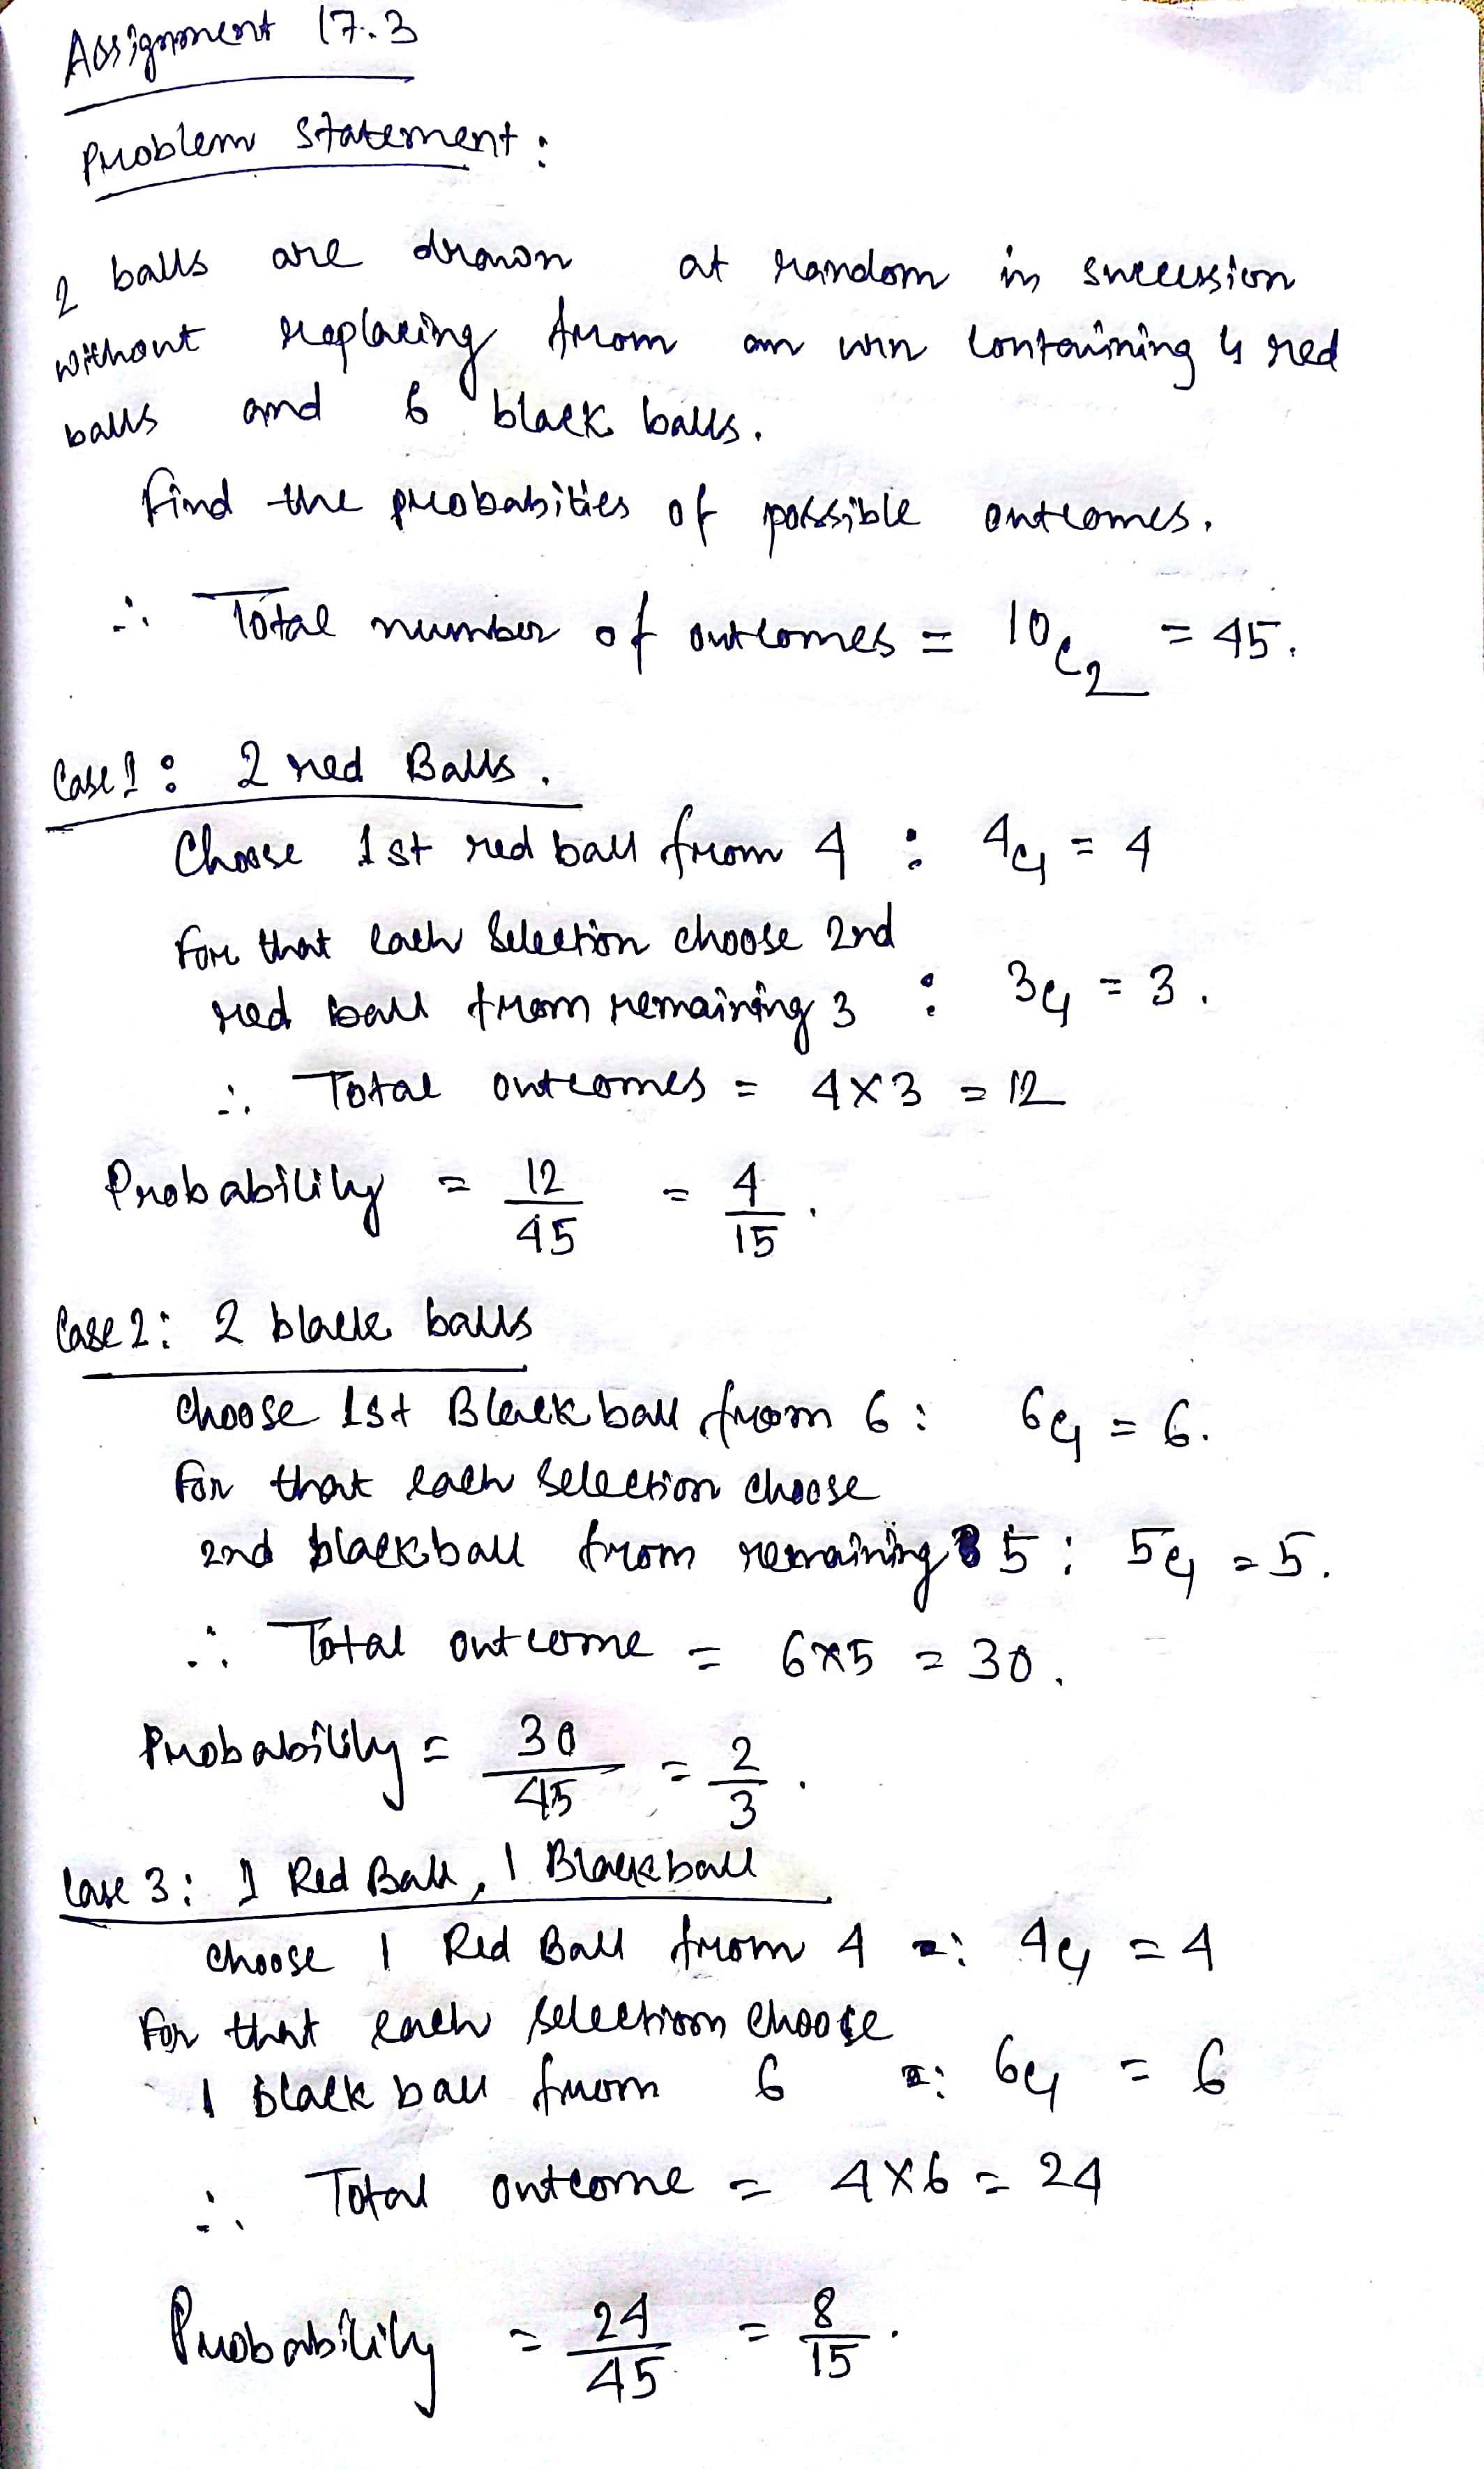 Assignment 17.3
Problem Statement:
2 balls are drawn at random in succession
without replacing from an urn containing 4 red
balls and 6 black balls.
find the probabities of possible outcomes.
∴ Total number of outcomes = 10c2 = 45.
Case 1: 2 red Balls.
Choose 1st red ball from 4 : 4c1 = 4
For that each Selection choose 2nd
red ball from remaining 3 : 3c1 = 3.
∴ Total outcomes = 4x3 = 12
Probability = 12/45 = 4/15.
Case 2: 2 black balls
choose 1st Black ball from 6: 6c1 = 6.
for that each selection choose
2nd black ball from remaining 5: 5c1 = 5.
∴ Total outcome = 6x5 = 30.
Probability = 30/45 = 2/3.
Case 3: 1 Red Ball, 1 Black ball
choose 1 Red Ball from 4 : 4c1 = 4
For that each selection choose
1 black ball from 6 : 6c1 = 6
∴ Total outcome = 4x6 = 24
Probability = 24/45 = 8/15.